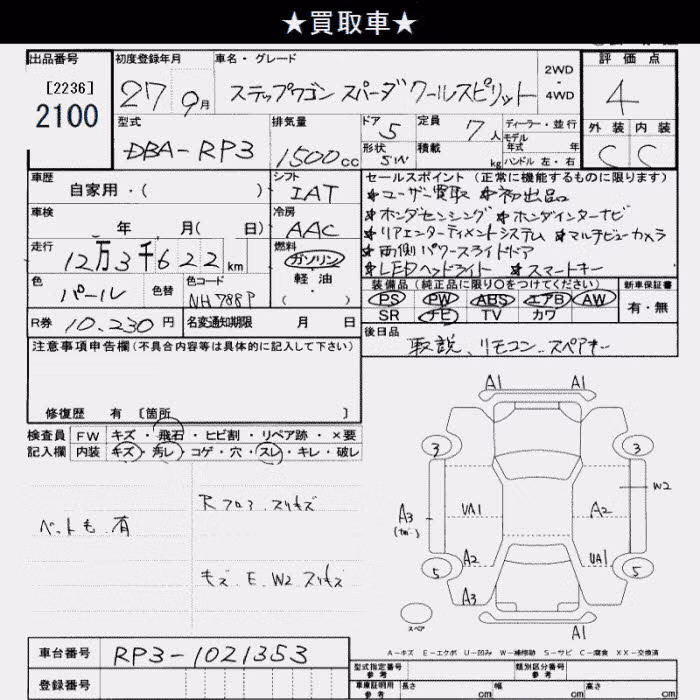 ★買取車★
出品番号 初度登録年月 車名・グレード 評価点
[2236]
2100
27 9月 ステップワゴン スパーダ クールスピリット 2WD・4WD 4
型式 排気量 ドア 5 定員 7人 ディーラー・並行 外装 内装
モデル年式 年式
DBA-RP3 1500cc 形状 5W 積載 kg ハンドル 左・右 C C
車歴 シフト セールスポイント(正常に機能するものに限ります)
自家用・( ) IAT ★ユーザー買取 ★初出品
車検 冷房 ★ホンダセンシング ★ホンダインターナビ
年 月( 日) AAC ★リアエンターテイメントシステム ★マルチビューカメラ
走行 燃料 ★両側パワースライドドア
12万3千622km ガソリン ★LEDヘッドライト ★スマートキー
色 色替 色コード 軽油
パール NH788P ( )
装備品(純正品に限り○をつけてください) 新車保証書
PS PW ABS エアB AW 有・無
SR ナビ TV カワ
R券 10.230円 名変通知期限 月 日 後日品
取説、リモコン、スペアキー
注意事項申告欄(不具合内容等は具体的に記入して下さい)
修復歴 有 〔箇所 〕
検査員 FW キズ・飛石・ヒビ割・リペア跡・×要
記入欄 内装 キズ・汚レ・コゲ・穴・スレ・キレ・破レ
ペットも 有
Rフロア スリキズ
キズ E W2 スリキズ
A1 A1
3 3
W2
A3 UA1 A2
A2 UA1
5 5
A3
A1
スペア
A-キズ E-エクボ U-凹み W-補修跡 S-サビ C-腐食 XX-交換済
車台番号 RP3-1021353
型式指定番号 参考 類別区分番号 参考
登録番号 車庫証明用 参考 長さ cm 幅 cm 高さ cm